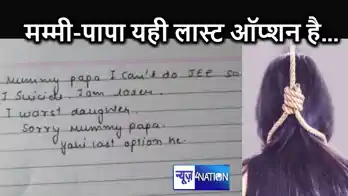 मम्मी-पापा यही लास्ट ऑप्शन है...
Mummy papa I can't do JEE so
I suicide. I am loser.
I worst daughter.
Sorry Mummy papa.
Yahi last option he.
न्यूज़
4NATION